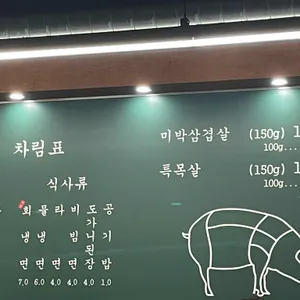 차림표
식사류
회냉면 7.0
물냉면 6.0
라면 4.0
비빔면 4.0
도가니된장 4.0
공기밥 1.0
미박삼겹살 (150g) 1
100g...
특목살 (150g) 1
100g....